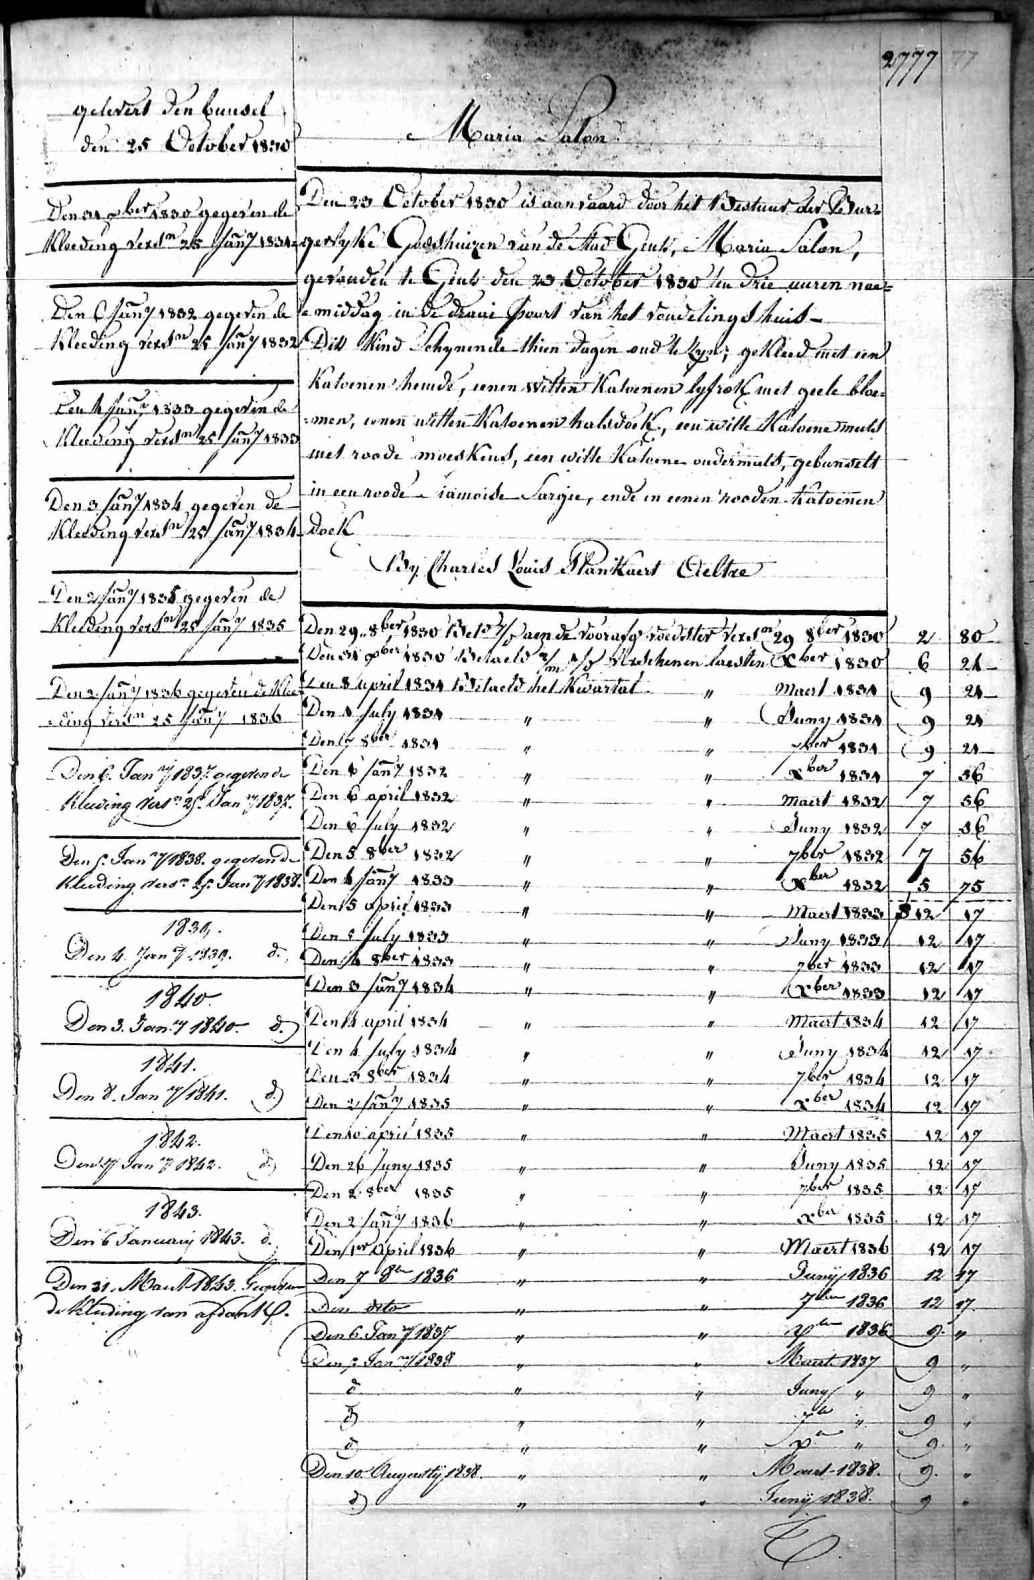 2777
gelevert den bunsel
den 25 October 1830
Maria Salon
Den 31 xber 1830 gegeven de
Kleeding versn 25 Jany 1831
Den 6 Jany 1832 gegeven de
Kleeding versn 25 Jany 1832
Den 4 Jany 1833 gegeven de
Kleeding versn 25 Jany 1833
Den 3 Jany 1834 gegeven de
Kleeding versn 25 Jany 1834
Den 2 Jany 1835 gegeven de
Kleeding versn 25 Jany 1835
Den 2 Jany 1836 gegeven de Klee
=ding versn 25 Jany 1836
Den 6 Jany 1837 gegeven de
Kleeding versn 25 Jany 1837.
Den 5 Jany 1838. gegeven de
Kleeding versn 25 Jany 1838.
1839.
Den 4 Jany 1839. d.
1840.
Den 3. Jany 1840 d.
1841.
Den 8. Jany 1841. d.
1842.
Den Jany 1842. d.
1843.
Den 6 January 1843. d.
Den 31. Maart 1843. Gegeven
de Kleeding van
Den 23 October 1830 is aanvaard door het Bestuur der Bur=
gerlyke Godshuizen van de Stad Gent, Maria Salon,
gevonden te Gent den 23 October 1830 ten drie uuren nae=
=middag in de draai Poort van het vondelingshuis
Dit Kind Schynende thien dagen oud te zyn, gekleed met een
Katoenen hemde, eenen witten Katoenen lyfrok met geele bloe=
=men, eenen witten Katoenen halsdoek, een witte Katoene muts
met roode moeskens, een witte Katoene ondermuts, gebunselt
in een roode siamoise Sargie, ende in eenen rooden Katoenen
doek
By Charles Louis Plankaert Aeltre
Den 29 8ber 1830 aen de voorafg voedster versn 29 8ber 1830 2 80
Den 31 xber 1830 Betaeld 2/m Verschenen laesten xber 1830 6 21
Den 8 april 1831 Betaeld het Kwartal " Maert 1831 9 24
Den 1 July 1831 " " Juny 1831 9 24
Den 7 8ber 1831 " " 7ber 1831 9 24
Den 6 Jany 1832 " " xber 1831 7 56
Den 6 april 1832 " " Maert 1832 7 56
Den 6 July 1832 " " Juny 1832 7 56
Den 5 8ber 1832 " " 7ber 1832 7 56
Den 4 Jany 1833 " " xber 1832 5 75
Den 5 april 1833 " " Maert 1833 12 17
Den 5 July 1833 " " Juny 1833 12 17
Den 4 8ber 1833 " " 7ber 1833 12 17
Den 3 Jany 1834 " " xber 1833 12 17
Den 4 april 1834 " " Maert 1834 12 17
Den 4 July 1834 " " Juny 1834 12 17
Den 3 8ber 1834 " " 7ber 1834 12 17
Den 2 Jany 1835 " " xber 1834 12 17
Den 10 april 1835 " " Maert 1835 12 17
Den 26 Juny 1835 " " Juny 1835 12 17
Den 2 8ber 1835 " " 7ber 1835 12 17
Den 2 Jany 1836 " " xber 1835 12 17
Den 1er April 1836 " " Maert 1836 12 17
Den 7 8er 1836 " " Junij 1836 12 17
Den dito " " 7ber 1836 12 17
Den 6 Jany 1837 " " xber 1836 9 "
Den 5 Jany 1838 " " Maert 1837 9 "
d " " Juny " 9 "
d " " 7er " 9 "
d " " xr " 9 "
Den 10 Augustij 1838. " " Maert 1838. 9 "
d " " Junij 1838. 9 "